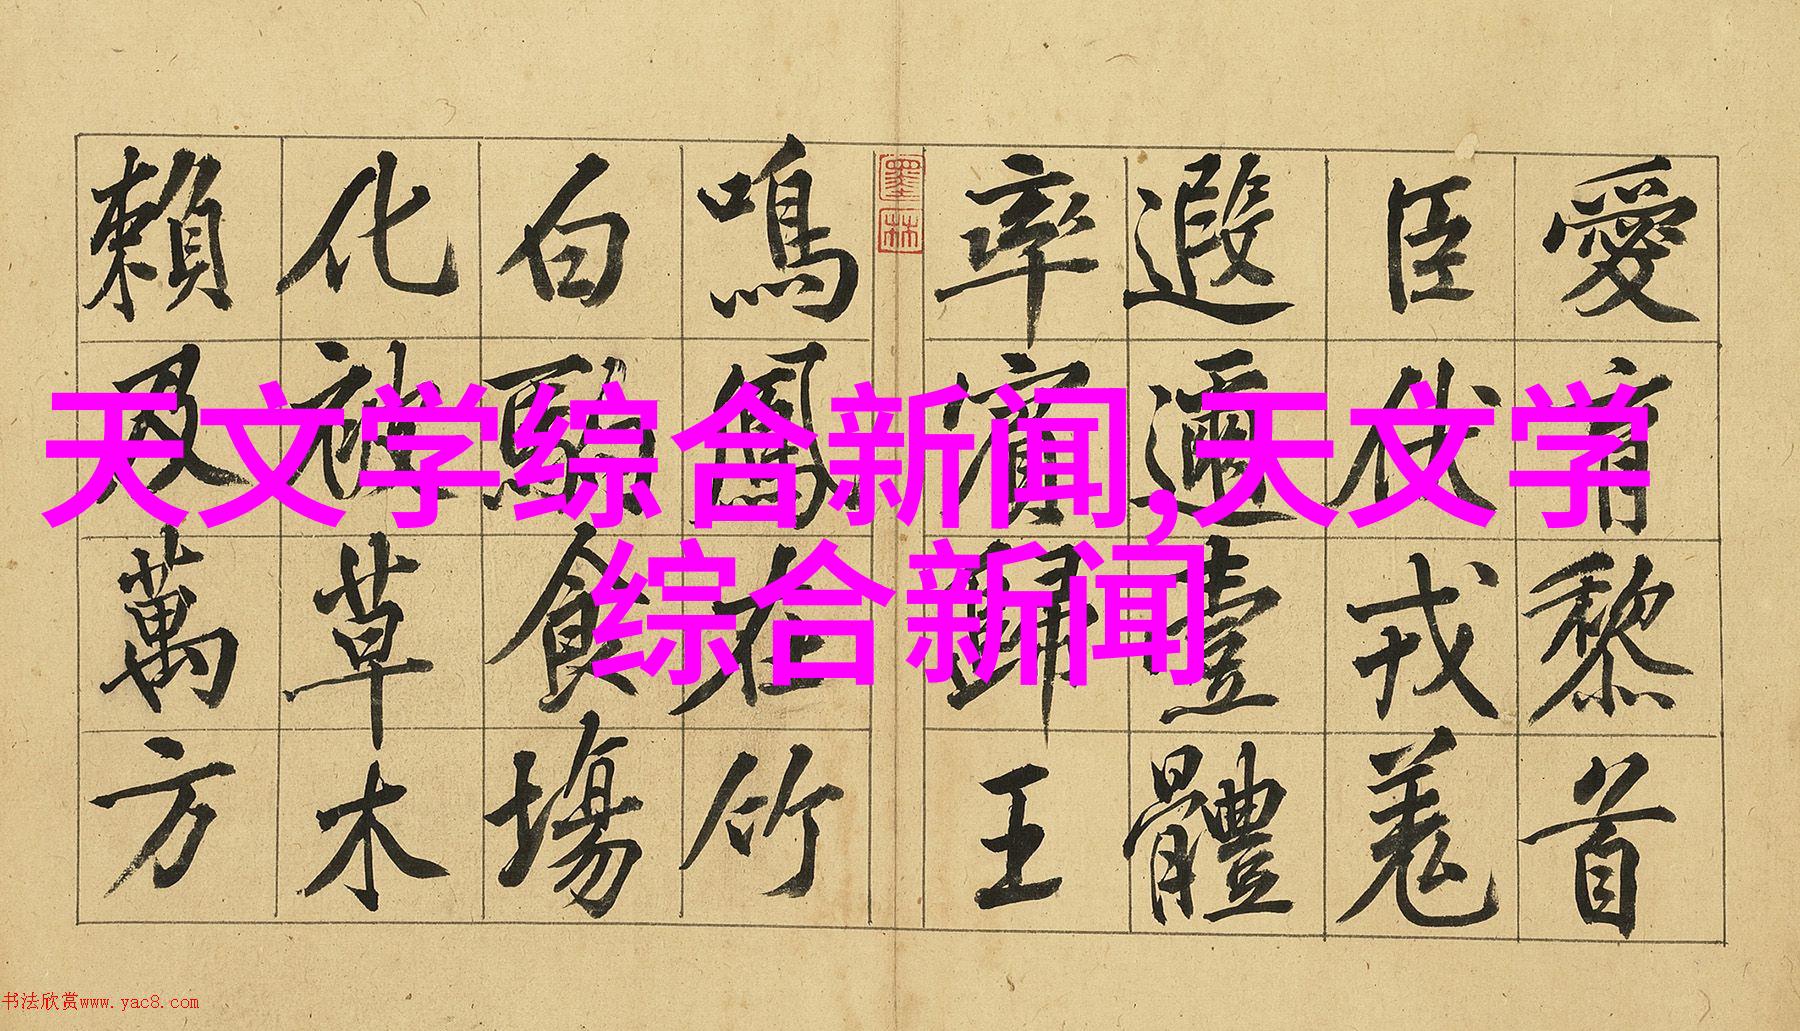 天文学综合新闻,天文学
综合新闻
愛育黎首
臣伏戎羌
遐邇壹體
率賓歸王
墨林
鳴鳳在竹
白駒食場
化被草木
賴及萬方
书法欣赏www.yac8.com